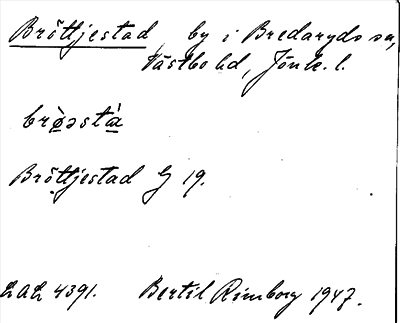 Bröttjestad, by i Bredaryds sn,
Västbo hd, Jönk. l.
brø̀əstà
Bröttjestad G 19.
LAL 4391. Bertil Rimborg 1947.